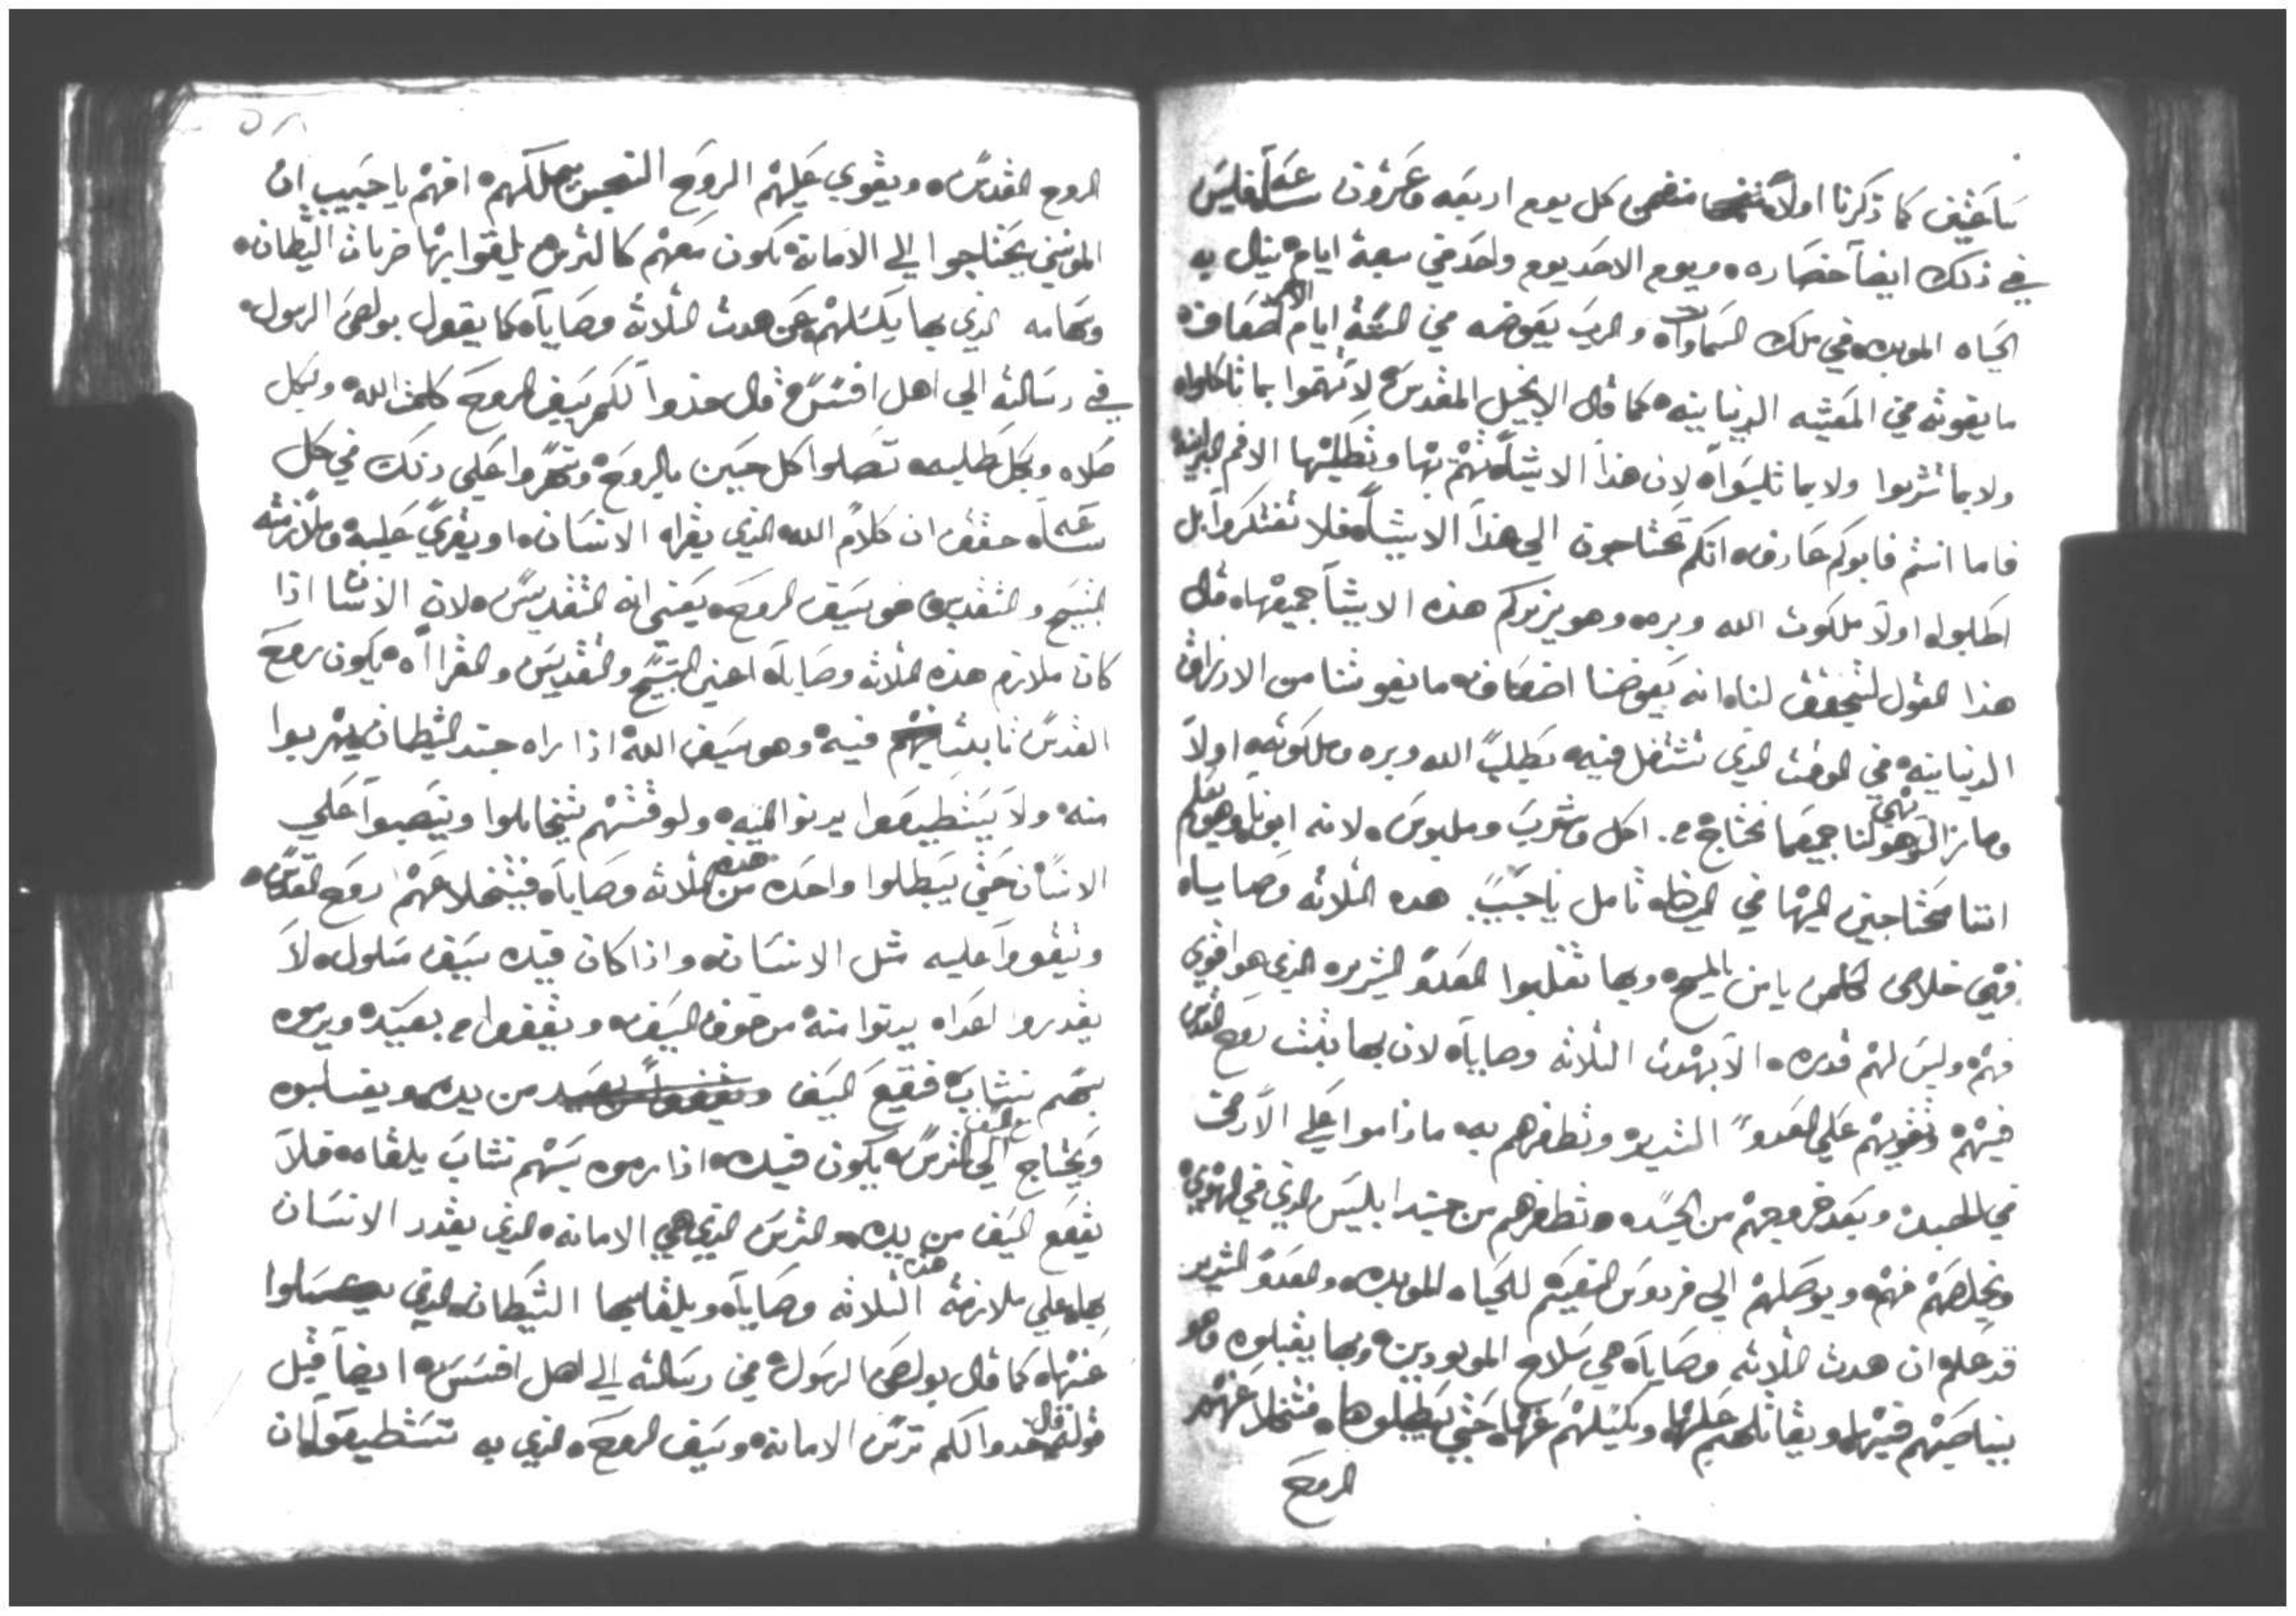 ساعتين كما ذكرنا اولاً من كل يوم اربعه وعشرون ساعه فليس
في ذلك ايضاً خصاره ويوم الاحد يوم واحد من سبعة ايام ينال به
الحياه الموبده في ملك السماوات والرب يعوضه من الستة ايام الاخر اضعاف
ما يفوته من المعيشه الدنيانيه كما قال الانجيل المقدس لا تهتموا بما تاكلوا
ولا بما تشربوا ولا بما تلبسوا لان هذا الاشيا تهتم بها وتطلبها الامم البرانيه
فاما انتم فابوكم عارف انكم تحتاجون الي هذا الاشيا فلا تفتكروا بل
اطلبوا اولا ملكوت الله وبره وهو يزيدكم هذه الاشيا جميعها قال
هذا القول لنتحقق لنا انه يعوضنا اضعاف ما يفوتنا من الارزاق
الدنيانيه في الوقت الذي نشتغل فيه بطلب الله وبره وملكوته اولا
لنا جميع ما نحتاج من اكل وشرب وملبوس لانه ابونا وهو يعلم
اننا محتاجين اليها تامل يا حبيب هده الثلاثه وصايا
فهي خلاص لكلمن يامن بالمسيح وبها تغلبوا العدو الشرير الذي هو اقوي
منهم وليس لهم قدره الا بهدت الثلاثه وصايا لان بها يثبت روح القدس
فيهم وتقويهم علي العدو الشرير وتظفرهم به ماداموا علي الارض
في الجسد وبعد خروجهم من الجسد وتظفرهم من جند ابليس الذي في الهوي
وتخلصهم منهم ويوصلهم الي فردوس النعيم للحياه الموبده والعدو الشرير
قد علم ان هدت الثلاثه وصايا هي سلاح المومنين وبها يغلبوه وهو
يناصبهم فيها ويقاتلهم عليها ويكسلهم عنها حتي يبطلوها فتتخلا عنهم
الروح
الروح القدس ويقوي عليهم الروح النجس افهم يا حبيب ان
المومنين يحتاجوا الي الامانه تكون معهم كالترس يلقوا بها ضربات الشيطان
وسهامه الذي بها يكسلهم عن هدت الثلاثه وصايا كما يقول بولص الرسول
في رسالته الي اهل افسس قال خدوا لكم سيف الروح كلمت الله وبكل
صلاه وبكل طلبه تصلوا كل حين بالروح وتسهروا علي ذلك في كل
ساعه حقق ان كلام الله الذي يقراه الانسان او يقري عليه وملازمته
التسبيح والتقديس هو سيف الروح يعني انه التقديس لان الانسان اذا
كان ملازم هذه الثلاثه وصايا اعني التسبيح والتقديس والقراأه يكون روح
القدس ثابت فيه وهو سيف الله اذا راه جند الشيطان يهربوا
منه ولا يستطيعوا يدنوا اليه ولوقتهم يتحايلوا ويتعصبوا علي
الانسان حتي يبطلوا واحده من هذه الثلاثه وصايا فيتخلا عنهم روح القدس
ويقووا عليه مثل الانسان واذا كان في يده سيف مسلول لا
يقدروا اعداه يدنوا منه من خوف السيف ويقفوا من بعيد ويرموه
بسهم نشاب فيقع السيف من يده ويغلبوه
ويحتاج مع السيف الي الترس يكون في يده اذا رموه بسهم نشاب يلقاه فلا
يقع السيف من يده والترس الذي هي الامانه الذي يقدر الانسان
بها علي ملازمة هذه الثلاثه وصايا ويلقا بها الشيطان الذي
عنها كما قال بولص الرسول في رسالته الي اهل افسس ايضاً قبل
قوله قال خدوا لكم ترس الامانه وسيف الروح الذي به تستطيعوا ان